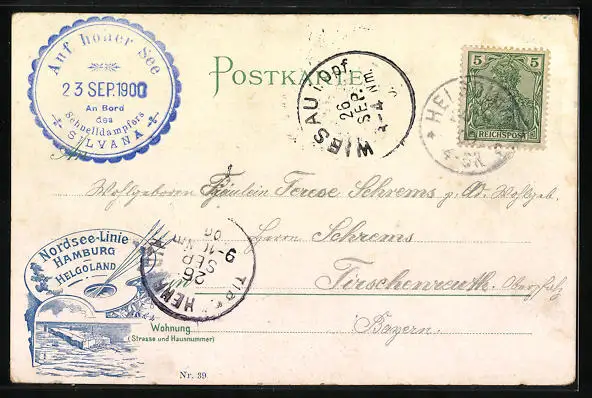 Auf hoher See
23 SEP. 1900
An Bord
des
Schnelldampfers
SILVANA
POSTKARTE
WIESAU
26
SEP.
5
REICHSPOST
Wohlgeboren Fräulein Terese Schrems p. Ad. Wohlgeb.
Herrn Schrems
Tirschenreuth. Oberpfalz
Bayern.
Nordsee-Linie
HAMBURG
HELGOLAND
26
SEP
Wohnung
(Strasse und Hausnummer)
Nr. 39.